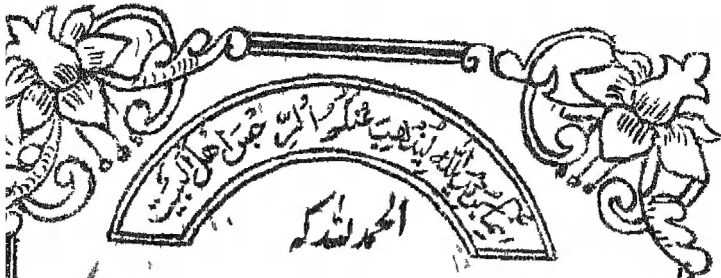 انما يريد الله ليذهب عنكم الرجس اهل البيت
الحمد لله که